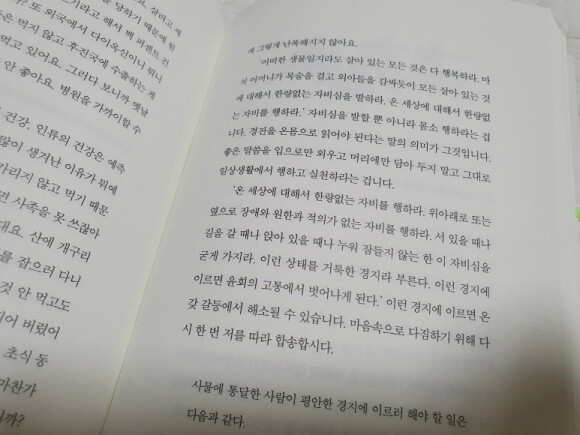 요. 살리고 세
을 당하기 때문에 뭐
라고 해서 백 퍼센트 건
? 또 외국에서 다이옥신이니 뭐니
는 먹지 않고 후진국에 수출하는 게
먹고 있어요. 그러다 보니까 옛날
안 좋아요. 병원을 가까이할 수
건강, 인류의 건강은 예측
많이 생겨난 이유가 뭐예
가리지 않고 먹기 때문
면 사족을 못 쓰잖아
대요. 산에 개구리
를 잡으러 다니
것 안 먹고도
되어 버렸어
초식 동
마찬가
니까?
에 그렇게 난폭해지지 않아요.
'어떠한 생물일지라도 살아 있는 모든 것은 다 행복하라. 마
치 어머니가 목숨을 걸고 외아들을 감싸듯이 모든 살아 있는 것
에 대해서 한량없는 자비심을 발하라. 온 세상에 대해서 한량없
는 자비를 행하라.' 자비심을 발할 뿐 아니라 몸소 행하라는 겁
니다. 경전을 온몸으로 읽어야 된다는 말의 의미가 그것입니다.
좋은 말씀을 입으로만 외우고 머리에만 담아 두지 말고 그대로
일상생활에서 행하고 실천하라는 겁니다.
'온 세상에 대해서 한량없는 자비를 행하라. 위아래로 또는
옆으로 장애와 원한과 적의가 없는 자비를 행하라. 서 있을 때나
길을 갈 때나 앉아 있을 때나 누워 잠들지 않는 한 이 자비심을
굳게 가지라. 이런 상태를 거룩한 경지라 부른다. 이런 경지에
이르면 윤회의 고통에서 벗어나게 된다.' 이런 경지에 이르면 온
갖 갈등에서 해소될 수 있습니다. 마음속으로 다짐하기 위해 다
시 한 번 저를 따라 합송합시다.
사물에 통달한 사람이 평안한 경지에 이르러 해야 할 일은
다음과 같다.